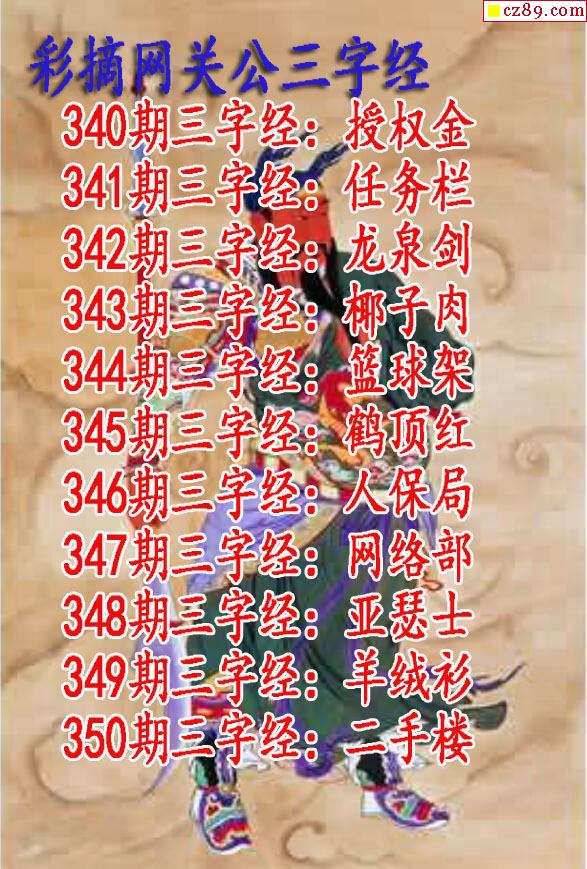 cz89.com
彩摘网关公三字经
340期三字经：授权金
341期三字经：任务栏
342期三字经：龙泉剑
343期三字经：椰子肉
344期三字经：篮球架
345期三字经：鹤顶红
346期三字经：人保局
347期三字经：网络部
348期三字经：亚瑟士
349期三字经：羊绒衫
350期三字经：二手楼